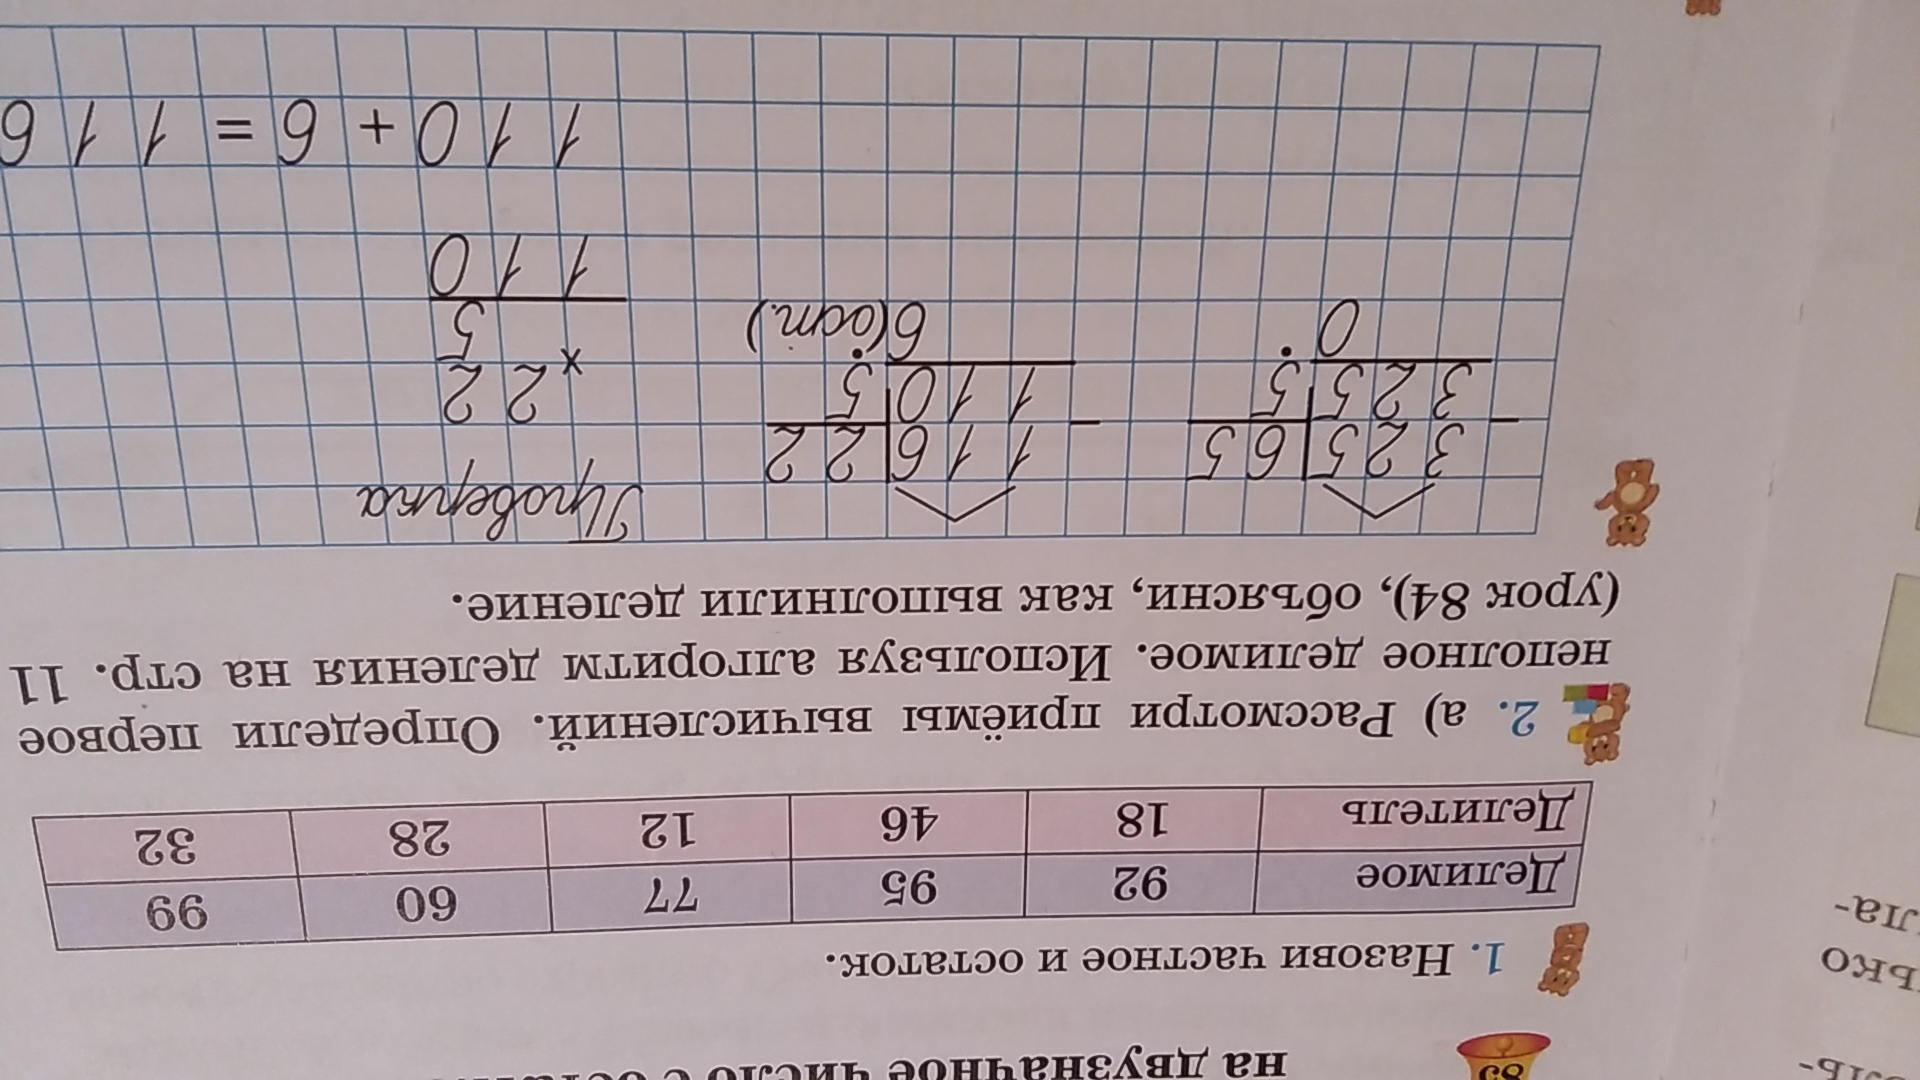 85
на двузначное число с
1. Назови частное и остаток.
Делимое 92 95 77 60 99
Делитель 18 46 12 28 32
2. а) Рассмотри приёмы вычислений. Определи первое
неполное делимое. Используя алгоритм деления на стр. 11
(урок 84), объясни, как выполнили деление.
Проверка
325 65 116 22 × 22
325 5 110 5 5
0 6(ост.) 110
110 + 6 = 116